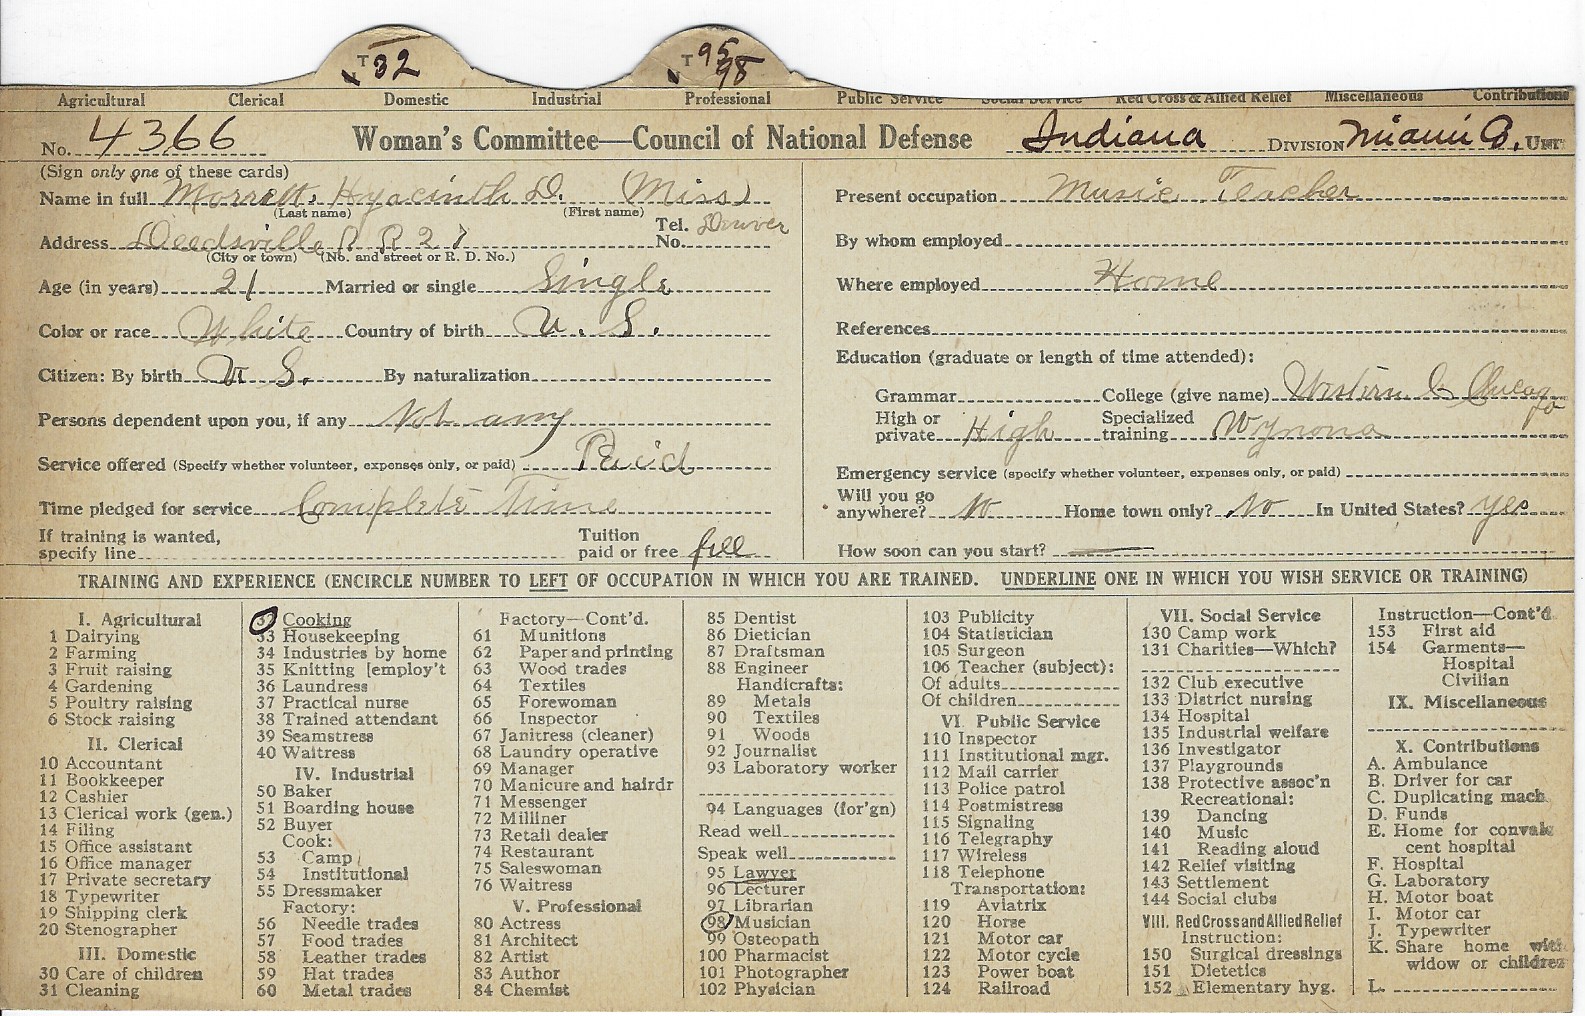 T 32 T 95 98
Agricultural Clerical Domestic Industrial Professional Public Service Social Service Red Cross & Allied Relief Miscellaneous Contributions
No. 4366 Woman's Committee—Council of National Defense Indiana DIVISION Miami Co. UNIT
(Sign only one of these cards)
Name in full Morrett, Hyacinth D. (Miss)
(Last name) (First name)
Address Deedsville R R 27 Tel. No. Denver
(City or town) (No. and street or R. D. No.)
Age (in years) 21 Married or single Single
Color or race White Country of birth U. S.
Citizen: By birth U S. By naturalization
Persons dependent upon you, if any Not any
Service offered (Specify whether volunteer, expenses only, or paid) Paid
Time pledged for service Complete Time
If training is wanted, specify line Tuition paid or free
Present occupation Music Teacher
By whom employed
Where employed Home
References
Education (graduate or length of time attended):
Grammar College (give name) Western C Chicago
High or private High Specialized training Wynona
Emergency service (specify whether volunteer, expenses only, or paid)
Will you go anywhere? No Home town only? No In United States? Yes
How soon can you start?
TRAINING AND EXPERIENCE (ENCIRCLE NUMBER TO LEFT OF OCCUPATION IN WHICH YOU ARE TRAINED. UNDERLINE ONE IN WHICH YOU WISH SERVICE OR TRAINING)
I. Agricultural
1 Dairying
2 Farming
3 Fruit raising
4 Gardening
5 Poultry raising
6 Stock raising
II. Clerical
10 Accountant
11 Bookkeeper
12 Cashier
13 Clerical work (gen.)
14 Filing
15 Office assistant
16 Office manager
17 Private secretary
18 Typewriter
19 Shipping clerk
20 Stenographer
III. Domestic
30 Care of children
31 Cleaning
32 Cooking
33 Housekeeping
34 Industries by home
35 Knitting [employ't
36 Laundress
37 Practical nurse
38 Trained attendant
39 Seamstress
40 Waitress
IV. Industrial
50 Baker
51 Boarding house
52 Buyer
Cook:
53 Camp
54 Institutional
55 Dressmaker
Factory:
56 Needle trades
57 Food trades
58 Leather trades
59 Hat trades
60 Metal trades
Factory—Cont'd.
61 Munitions
62 Paper and printing
63 Wood trades
64 Textiles
65 Forewoman
66 Inspector
67 Janitress (cleaner)
68 Laundry operative
69 Manager
70 Manicure and hairdr
71 Messenger
72 Milliner
73 Retail dealer
74 Restaurant
75 Saleswoman
76 Waitress
V. Professional
80 Actress
81 Architect
82 Artist
83 Author
84 Chemist
85 Dentist
86 Dietician
87 Draftsman
88 Engineer
Handicrafts:
89 Metals
90 Textiles
91 Woods
92 Journalist
93 Laboratory worker
94 Languages (for'gn)
Read well
Speak well
95 Lawyer
96 Lecturer
97 Librarian
98 Musician
99 Osteopath
100 Pharmacist
101 Photographer
102 Physician
103 Publicity
104 Statistician
105 Surgeon
106 Teacher (subject):
Of adults
Of children
VI. Public Service
110 Inspector
111 Institutional mgr.
112 Mail carrier
113 Police patrol
114 Postmistress
115 Signaling
116 Telegraphy
117 Wireless
118 Telephone
Transportation:
119 Aviatrix
120 Horse
121 Motor car
122 Motor cycle
123 Power boat
124 Railroad
VII. Social Service
130 Camp work
131 Charities—Which?
132 Club executive
133 District nursing
134 Hospital
135 Industrial welfare
136 Investigator
137 Playgrounds
138 Protective assoc'n
Recreational:
139 Dancing
140 Music
141 Reading aloud
142 Relief visiting
143 Settlement
144 Social clubs
VIII. Red Cross and Allied Relief
Instruction:
150 Surgical dressings
151 Dietetics
152 Elementary hyg.
Instruction—Cont'd
153 First aid
154 Garments—
Hospital
Civilian
IX. Miscellaneous
X. Contributions
A. Ambulance
B. Driver for car
C. Duplicating mach.
D. Funds
E. Home for convales
cent hospital
F. Hospital
G. Laboratory
H. Motor boat
I. Motor car
J. Typewriter
K. Share home with
widow or children
L.